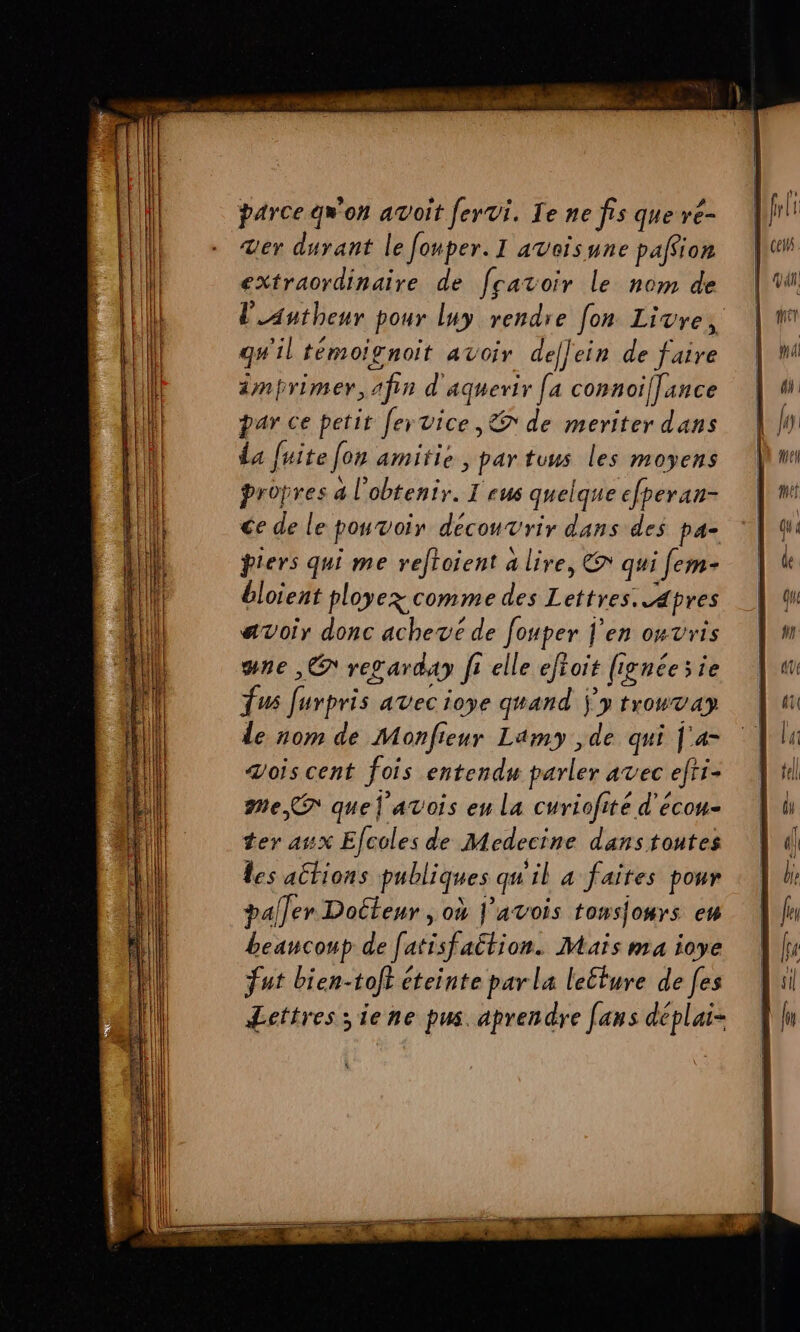 parce qu'on avoit ſervi. Ie ne fis que ré-
ver durant le ſouper. I avois une paſsion
extraordinaire de ſçavoir le nom de
l'Autheur pour luy rendre ſon Livre,
qu'il témoignoit avoir deſſein de faire
imprimer, afin d'aquerir ſa connoiſſance
par ce petit ſervice, & de meriter dans
la ſuite ſon amitié, par tous les moyens
propres à l'obtenir. I eus quelque eſperan-
ce de le pouvoir découvrir dans des pa-
piers qui me reſtoient à lire, & qui ſem-
bloient ployez comme des Lettres. Apres
avoir donc achevé de ſouper j'en ouvris
une, & regarday ſi elle eſtoit ſignée; ie
fus ſurpris avec ioye quand j'y trouvay
le nom de Monſieur Lamy, de qui j'a-
vois cent fois entendu parler avec eſti-
me, & que j'avois eu la curioſité d'écou-
ter aux Eſcoles de Medecine dans toutes
les actions publiques qu'il a faites pour
paſſer Docteur, où j'avois tousjours eu
beaucoup de ſatisfaction. Mais ma ioye
fut bien-toſt éteinte par la lecture de ſes
Lettres; ie ne pus aprendre ſans déplai-